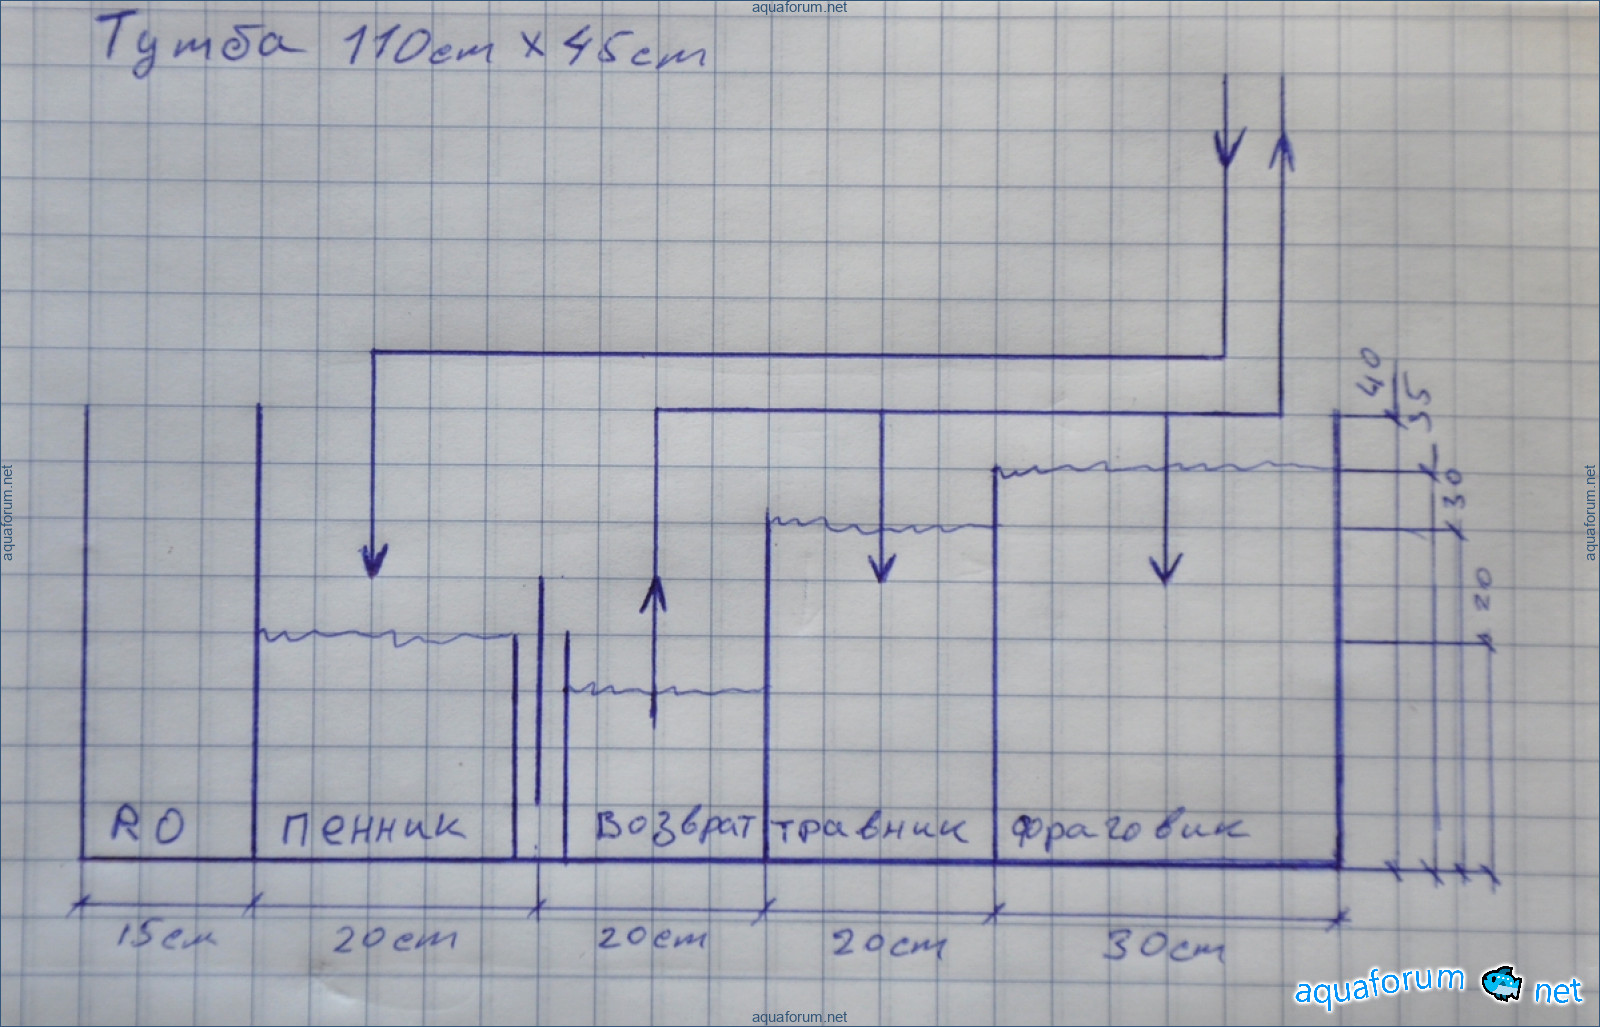 aquaforum.net
Тумба 110cm x 45cm
40
35
30
20
aquaforum.net
aquaforum.net
RO пенник Возврат травник фраговик
15см 20cm 20cm 20cm 30cm
aquaforum net
aquaforum.net